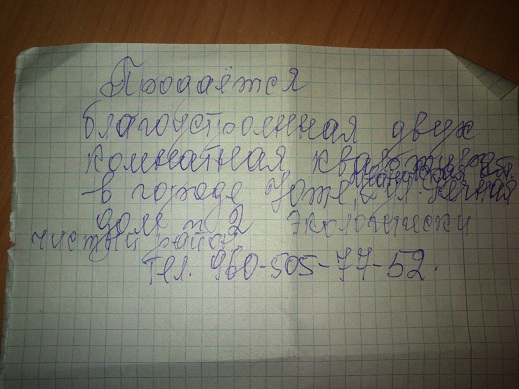 Продаётся
благоустроенная двух
комнатная квартира
в городе
дом № 2 Экологически
чистый район
Тел. 960-505-77-52.